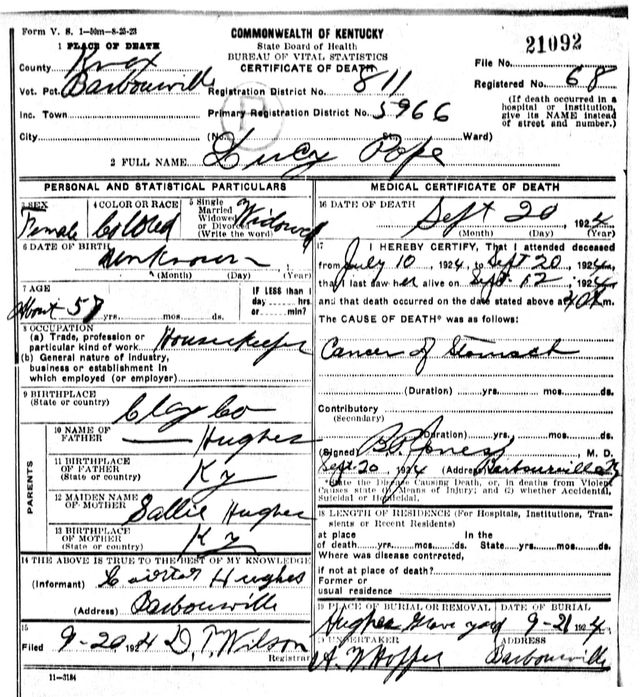 Form V. S. 1-50m-8-23-23
COMMONWEALTH OF KENTUCKY
State Board of Health
BUREAU OF VITAL STATISTICS
CERTIFICATE OF DEATH
21092
1 PLACE OF DEATH
County Knox
File No.
Vot. Pct. Barbourville
Registration District No. 811
Registered No. 68
Inc. Town
Primary Registration District No. 5966
(If death occurred in a hospital or institution, give its NAME instead of street and number.)
City (No. St., Ward)
2 FULL NAME Lucy Pope
PERSONAL AND STATISTICAL PARTICULARS
3 SEX Female
4 COLOR OR RACE Colored
5 Single Married Widowed or Divorced (Write the word) Widowed
6 DATE OF BIRTH Unknown
(Month) (Day) (Year)
7 AGE About 57 yrs. mos. ds.
IF LESS than 1 day hrs. or min?
8 OCCUPATION
(a) Trade, profession or particular kind of work Housekeeper
(b) General nature of industry, business or establishment in which employed (or employer)
9 BIRTHPLACE (State or country) Clay Co
PARENTS
10 NAME OF FATHER Hughes
11 BIRTHPLACE OF FATHER (State or country) Ky
12 MAIDEN NAME OF MOTHER Sallie Hughes
13 BIRTHPLACE OF MOTHER (State or country) Ky
14 THE ABOVE IS TRUE TO THE BEST OF MY KNOWLEDGE
(Informant) Hughes
(Address) Barbourville
15
Filed 9-20 1924 D. T. Wilson
Registrar
11-3184
MEDICAL CERTIFICATE OF DEATH
16 DATE OF DEATH Sept 20 1924
(Month) (Day) (Year)
17 I HEREBY CERTIFY, That I attended deceased
from July 10, 1924, to Sept 20, 1924,
that I last saw her alive on Sept 12, 1924
and that death occurred on the date stated above at m.
The CAUSE OF DEATH* was as follows:
Cancer of Stomach
(Duration) yrs. mos. ds.
Contributory
(Secondary)
(Duration) yrs. mos. ds.
(Signed) Jones, M. D.
Sept 20, 1924 (Address) Barbourville Ky
*State the Disease Causing Death, or, in deaths from Violent Causes state (1) Means of Injury; and (2) whether Accidental, Suicidal or Homicidal.
18 LENGTH OF RESIDENCE (For Hospitals, Institutions, Transients or Recent Residents)
at place of death yrs. mos. ds. In the State yrs. mos. ds.
Where was disease contracted,
if not at place of death?
Former or usual residence
19 PLACE OF BURIAL OR REMOVAL Hughes Grave yard
DATE OF BURIAL 9-21 1924
20 UNDERTAKER
ADDRESS Barbourville